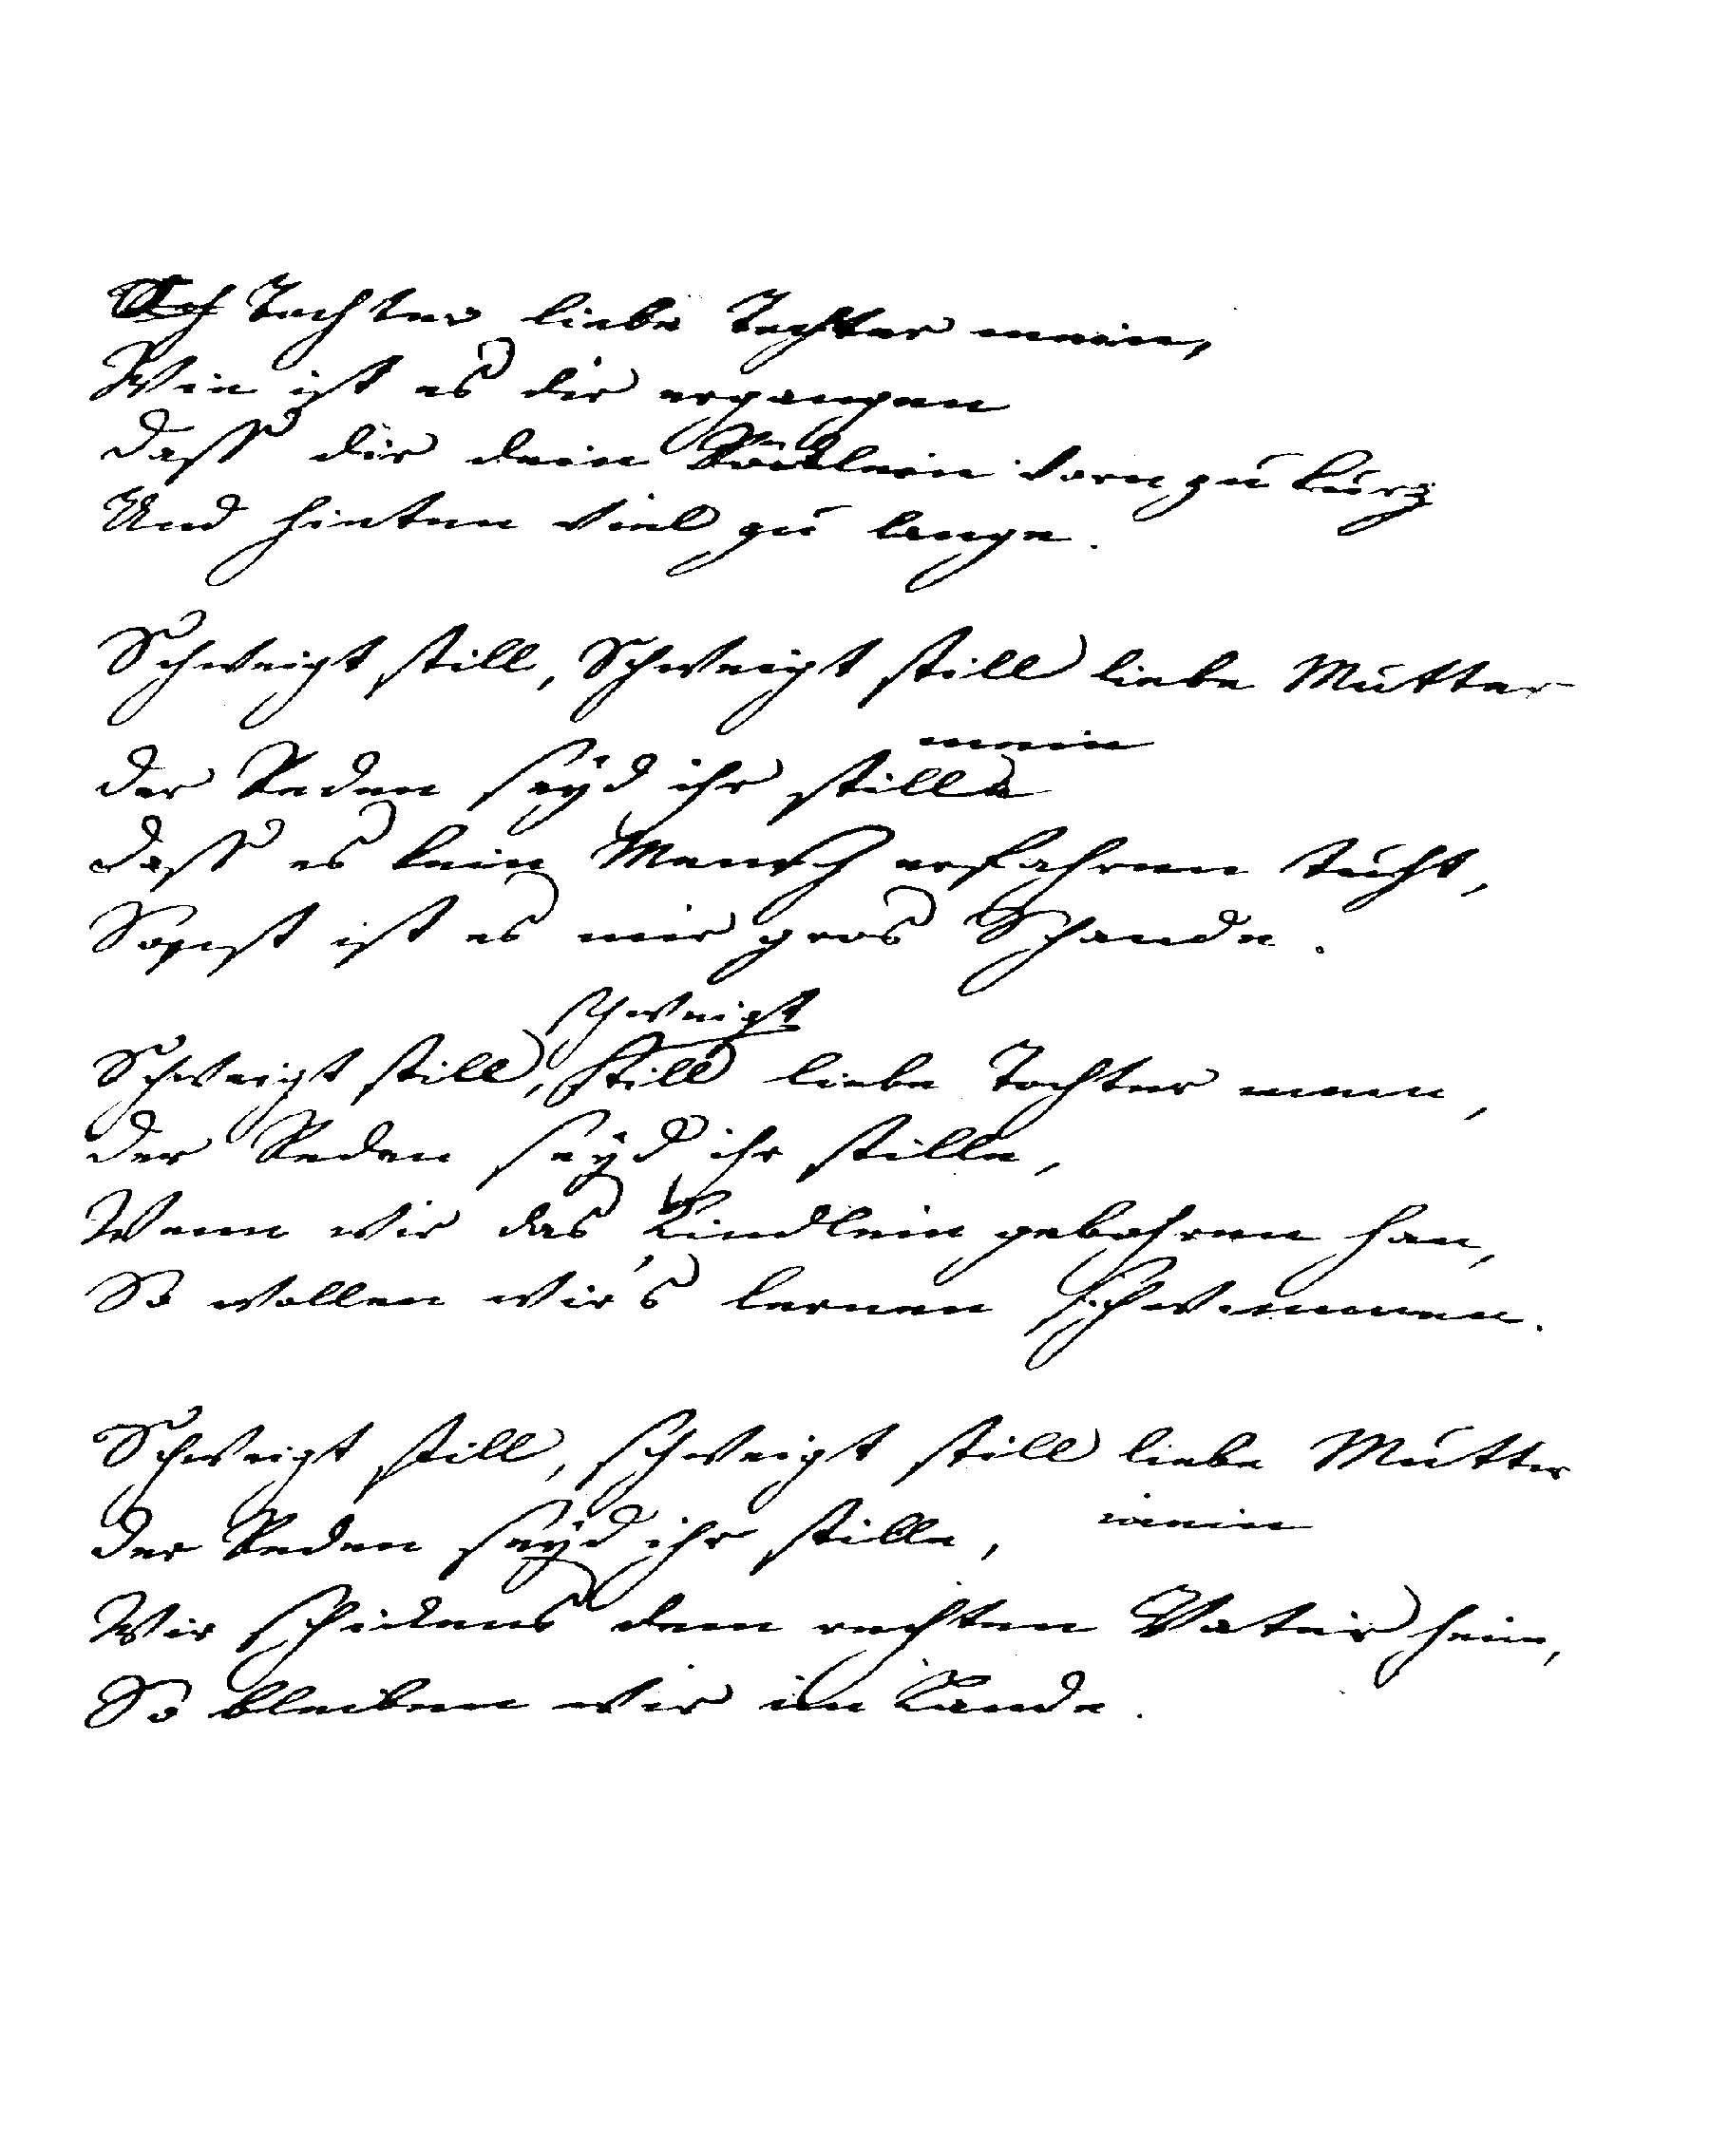 Ach Tochter liebe Tochter mein,
Wie ist es dir ergangen
dass dir dein Röcklein vorn zu kurz
Und hinten viel zu lange.
Schweigt still, Schweigt still liebe Mutter
mein
der Reden seÿd ihr stille
dass es kein Mensch erfahren
Sonst ist es mir gros Schande.
schweigt
Schweigt still, still liebe Tochter mein,
der Reden seÿd ihr stille,
Wenn wir das Kindlein gebohren han,
So wollen wir's lernen schwimmen.
Schweigt still, schweigt still liebe Mutter
mein
der Reden seÿd ihr stille,
Wir schickens dem rechten Vater heim,
So bleiben wir im Lande.